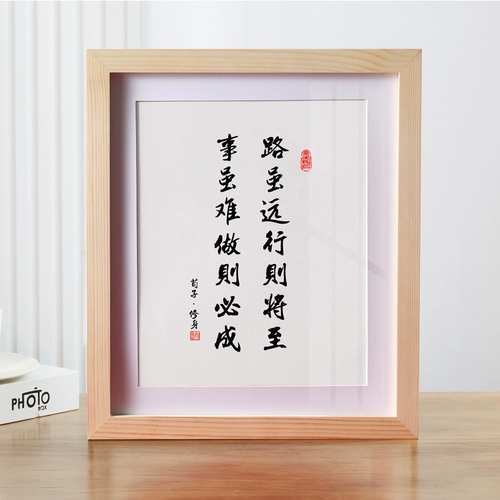 路虽远行則将至
事虽难做則必成
荀子·修身
PHOTO
BOX